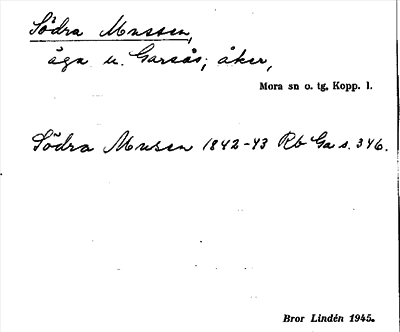 Södra Mussen,
äga u. Garsås; åker,
Mora sn o. tg, Kopp. l.
Södra Mussen 1842-43 Rb Ga s. 346.
Bror Lindén 1945.